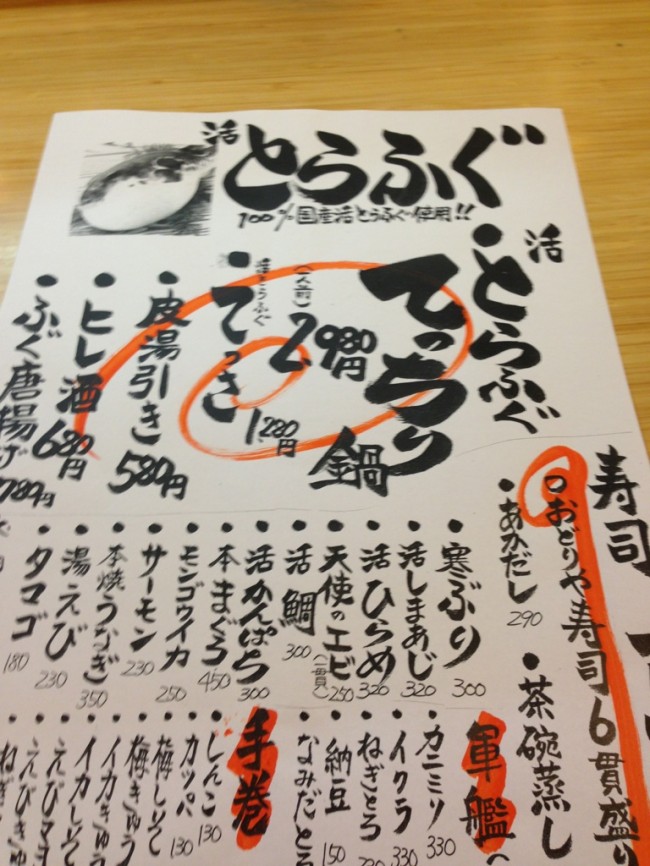 活とらふぐ
100%国産活とらふぐ使用!!
•活とらふぐ
てっちり鍋
(一人前) 2980円
•活とらふぐ
てっさ 1,280円
•皮湯引き 580円
•ヒレ酒 680円
•ふぐ唐揚げ 780円
寿司
おどりや寿司6貫盛り
•あかだし 290
•茶碗蒸し
•寒ぶり 300
•活しまあじ 320
•活ひらめ 320
•天使のエビ (一貫) 250
•活鯛 300
•活かんぱち 300
•本まぐろ 450
•モンゴウイカ 250
•サーモン 230
•本焼うなぎ 350
•湯えび 230
•タマゴ 180
軍艦
•カニミソ 330
•イクラ 330
•ねぎとろ
•納豆 150
•なみだとろ
手巻
•しんこ 130
•カッパ 130
•梅しそ
•梅きゅう
•イカきゅう
•イカしそ